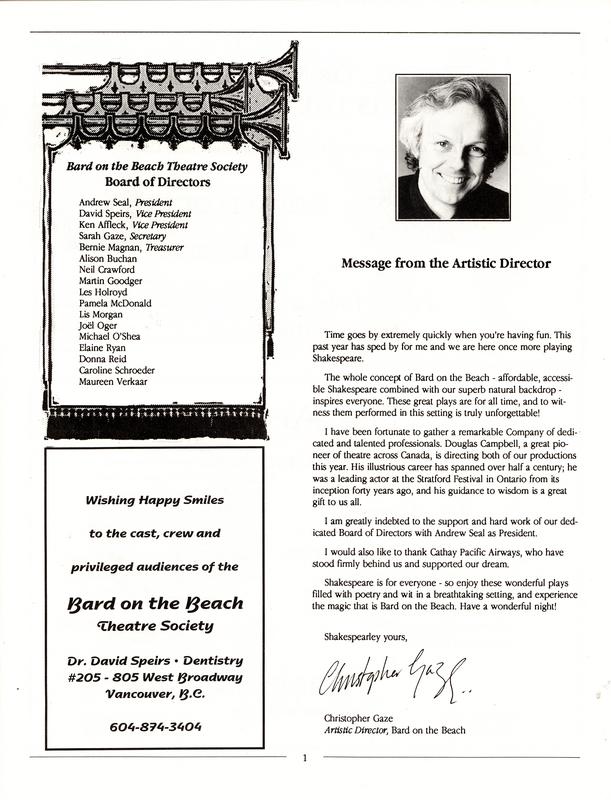 Bard on the Beach Theatre Society
Board of Directors
Andrew Seal, President
David Speirs, Vice President
Ken Affleck, Vice President
Sarah Gaze, Secretary
Bernie Magnan, Treasurer
Alison Buchan
Neil Crawford
Martin Goodger
Les Holroyd
Pamela McDonald
Lis Morgan
Joël Oger
Michael O'Shea
Elaine Ryan
Donna Reid
Caroline Schroeder
Maureen Verkaar
Wishing Happy Smiles
to the cast, crew and
privileged audiences of the
Bard on the Beach
Theatre Society
Dr. David Speirs • Dentistry
#205 - 805 West Broadway
Vancouver, B.C.
604-874-3404
Message from the Artistic Director
Time goes by extremely quickly when you're having fun. This
past year has sped by for me and we are here once more playing
Shakespeare.
The whole concept of Bard on the Beach - affordable, accessi-
ble Shakespeare combined with our superb natural backdrop -
inspires everyone. These great plays are for all time, and to wit-
ness them performed in this setting is truly unforgettable!
I have been fortunate to gather a remarkable Company of dedi-
cated and talented professionals. Douglas Campbell, a great pio-
neer of theatre across Canada, is directing both of our productions
this year. His illustrious career has spanned over half a century; he
was a leading actor at the Stratford Festival in Ontario from its
inception forty years ago, and his guidance to wisdom is a great
gift to us all.
I am greatly indebted to the support and hard work of our ded-
icated Board of Directors with Andrew Seal as President.
I would also like to thank Cathay Pacific Airways, who have
stood firmly behind us and supported our dream.
Shakespeare is for everyone - so enjoy these wonderful plays
filled with poetry and wit in a breathtaking setting, and experience
the magic that is Bard on the Beach. Have a wonderful night!
Shakespearley yours,
Christopher Gaze..
Christopher Gaze
Artistic Director, Bard on the Beach
1